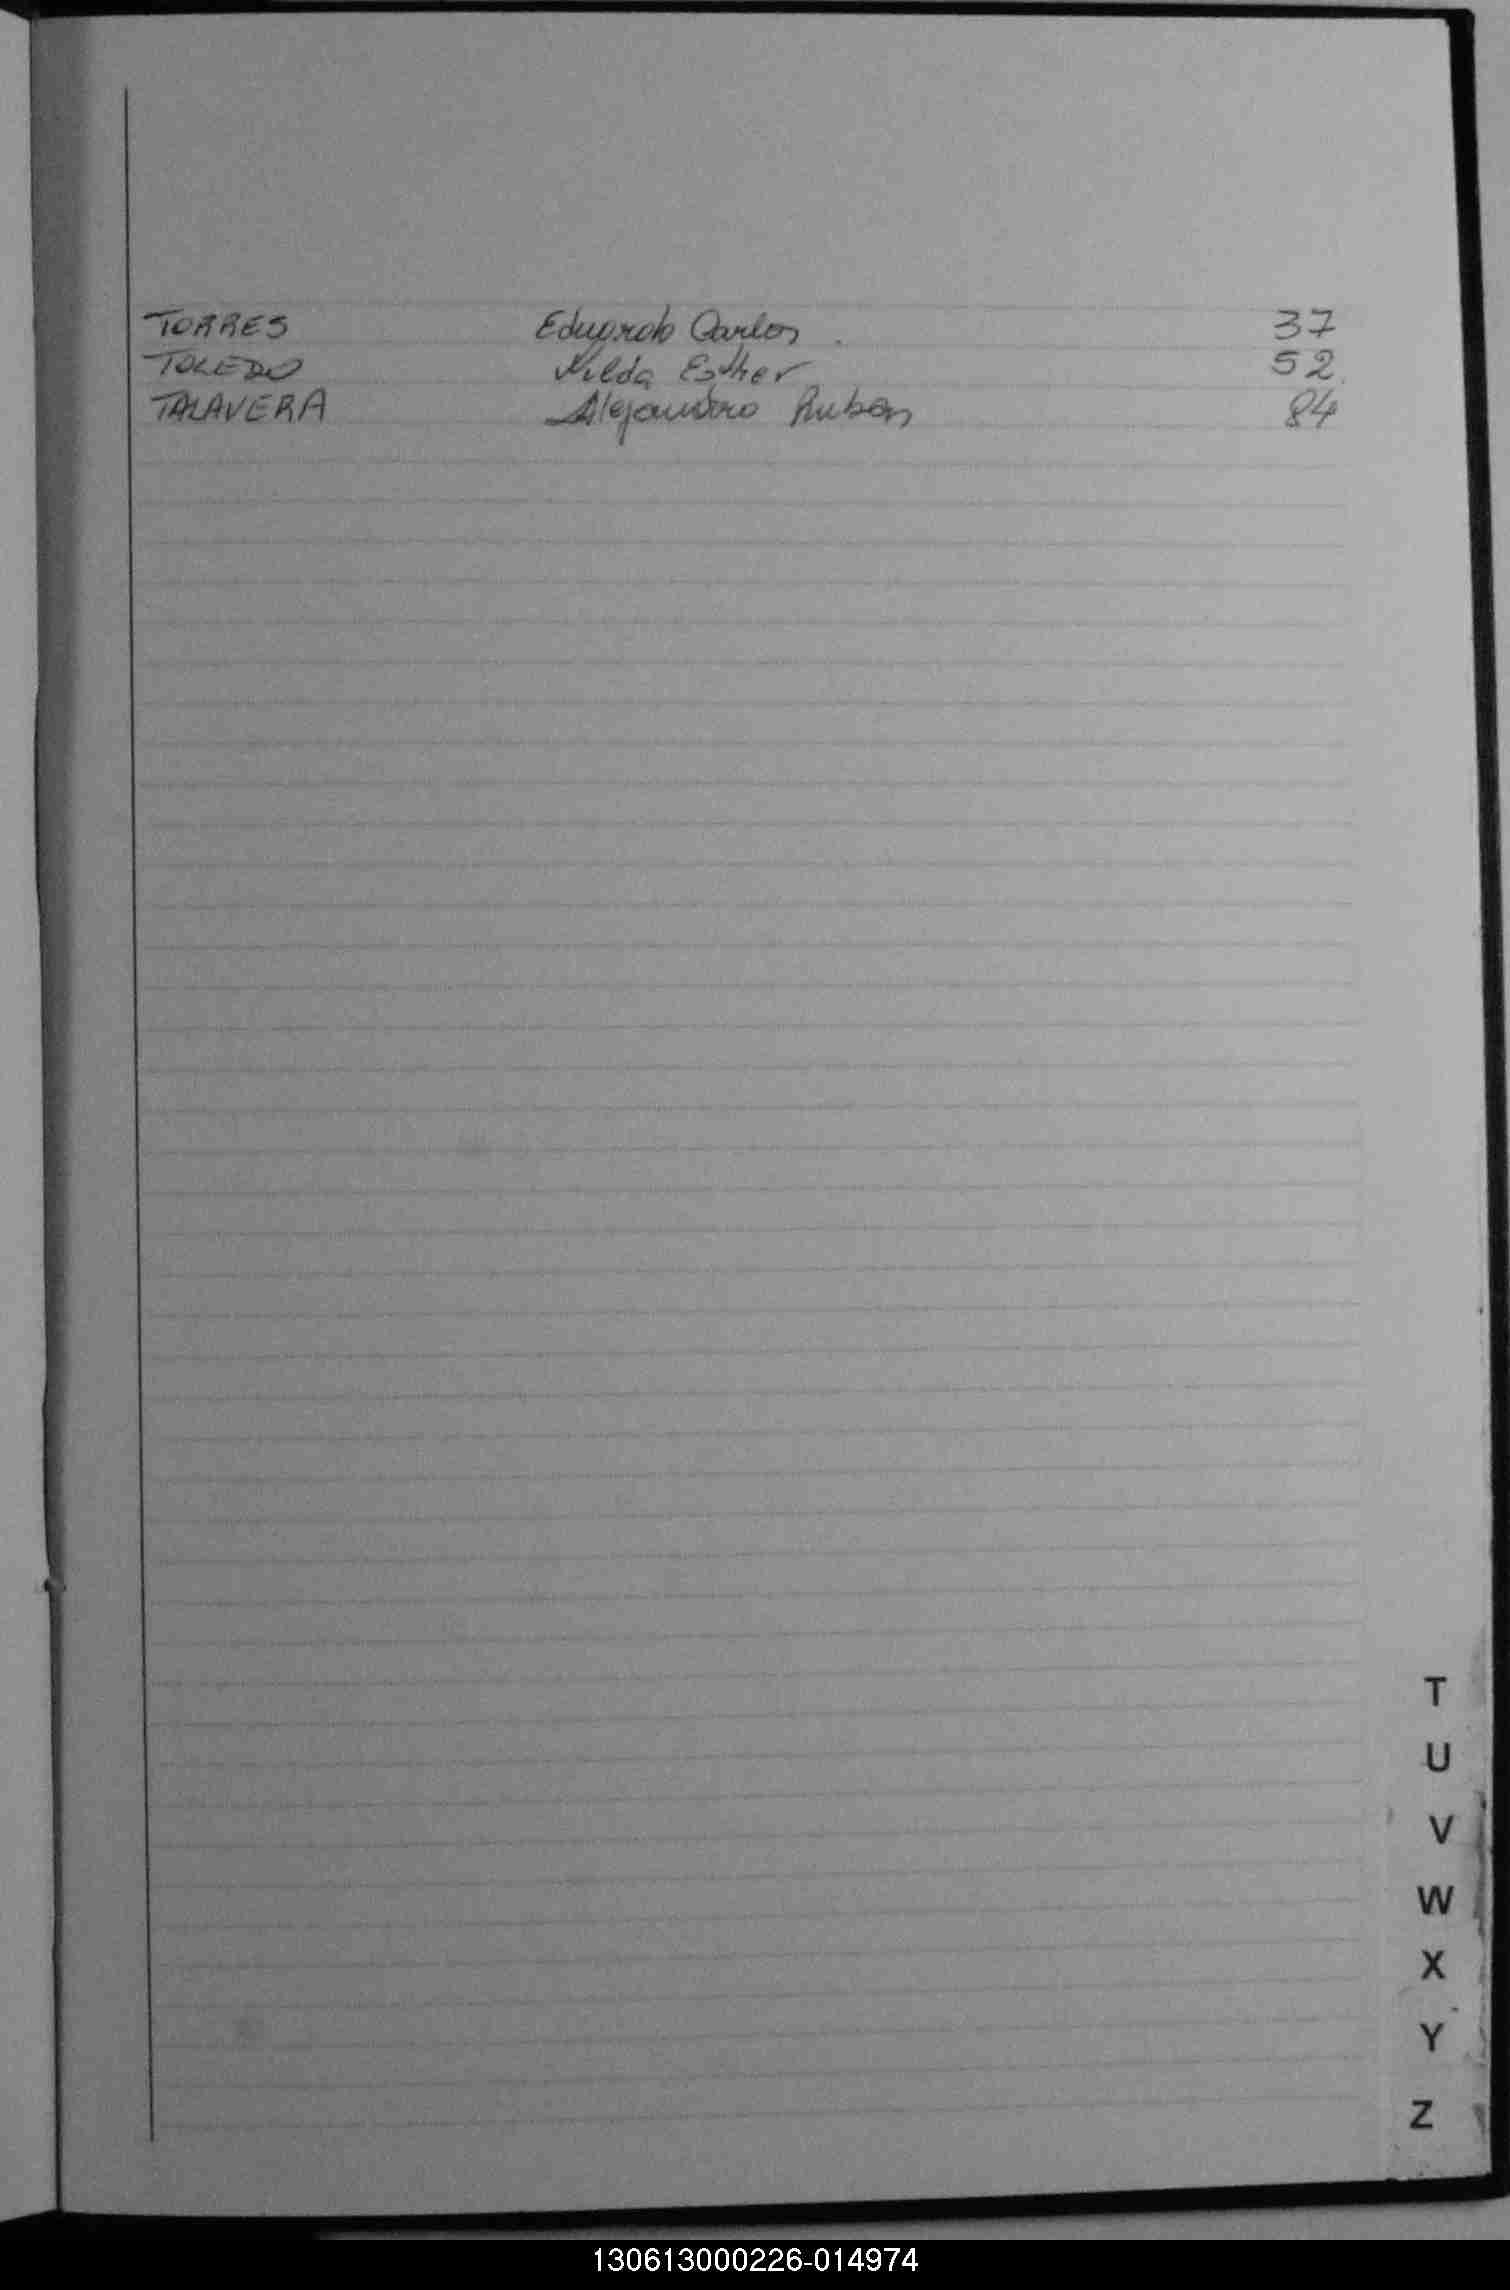 TORRES Eduardo Carlos 37
TOLEDO Nilda Esther 52
TALAVERA Alejandro Ruben 84
T
U
V
W
X
Y
Z
130613000226-014974